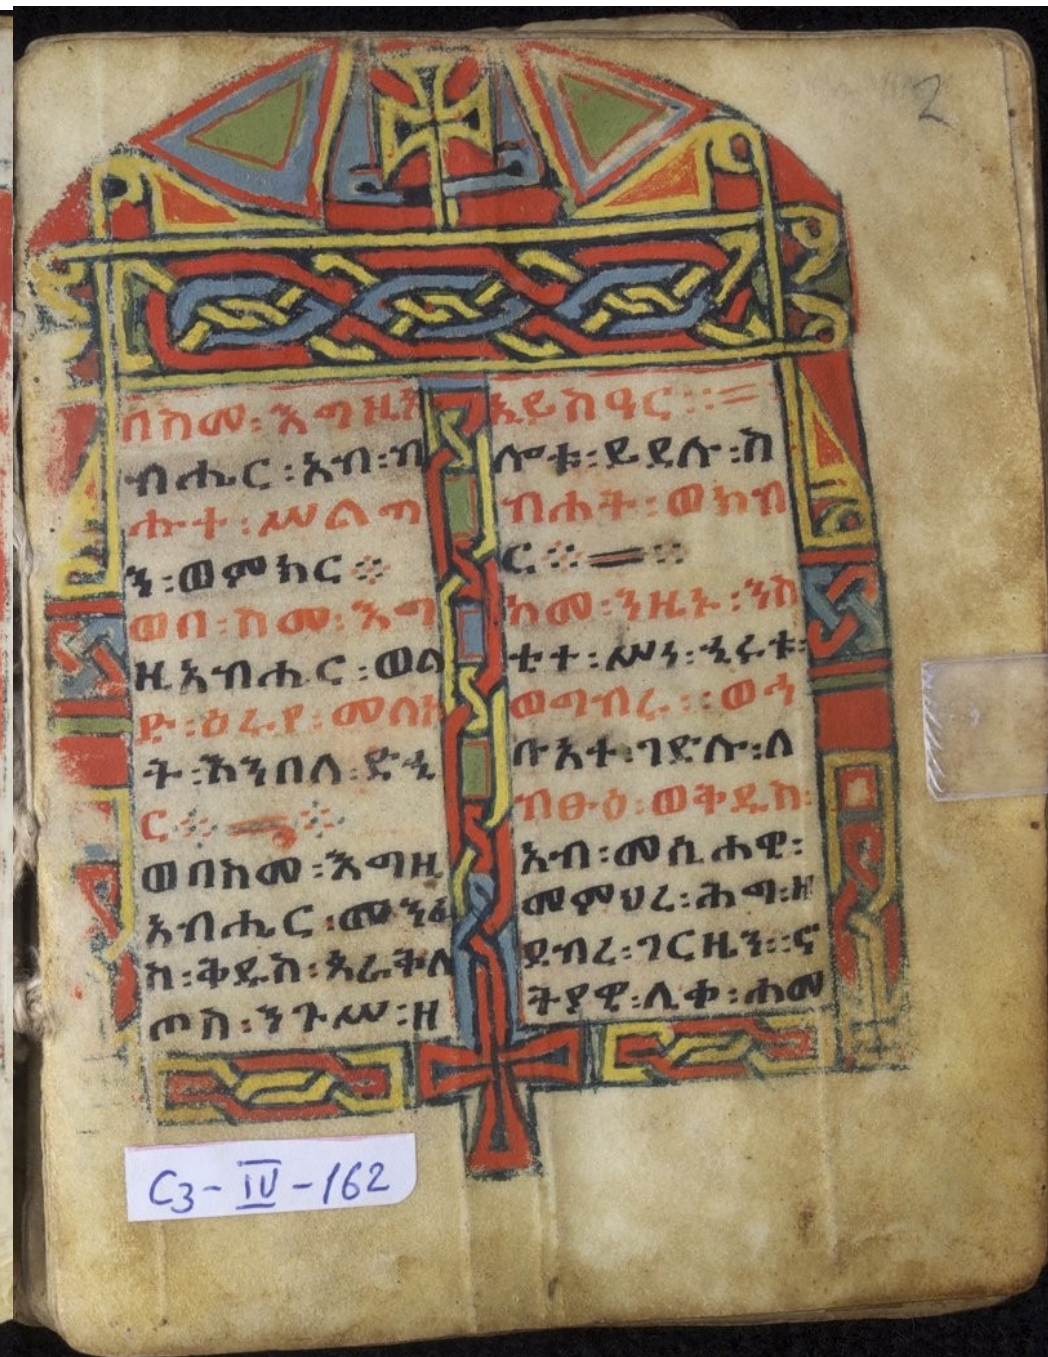 2
በስመ፡ እግዚአ
ብሔር፡አብ፡ብ
ሑተ፡ ሥልጣ
ን፡ወምክር፨
ወበ፡ስመ፡እግ
ዚአብሔር፡ወል
ድ፡ዕሩየ፡መለኮ
ት፡እንበለ፡ድኂ
ር፨
ወበስመ፡እግዚ
አብሔር፡መንፈ
ስ፡ቅዱስ፡ጰራቅሊ
ጦስ፡ንጉሥ፡ዘ
ኢይስዓር፡፡=
ሎቱ፡ይደሉ፡ስ
ብሐት፡ወክብ
ር፨=፨
ከመ፡ንዜኑ፡ንስ
ቲተ፡ሥነ፡ኂሩቱ፡
ወግብረ፡፡ወኃ
ቡአተ፡ገድሉ፡ለ
ብፁዕ፡ወቅዱስ፡
አብ፡መሲሐዊ፡
መምህረ፡ሕግ፡ዘ
ደብረ፡ገርዜን፡፡
ትያዊ፡ሊቀ፡ሐመ
C3-IV-162